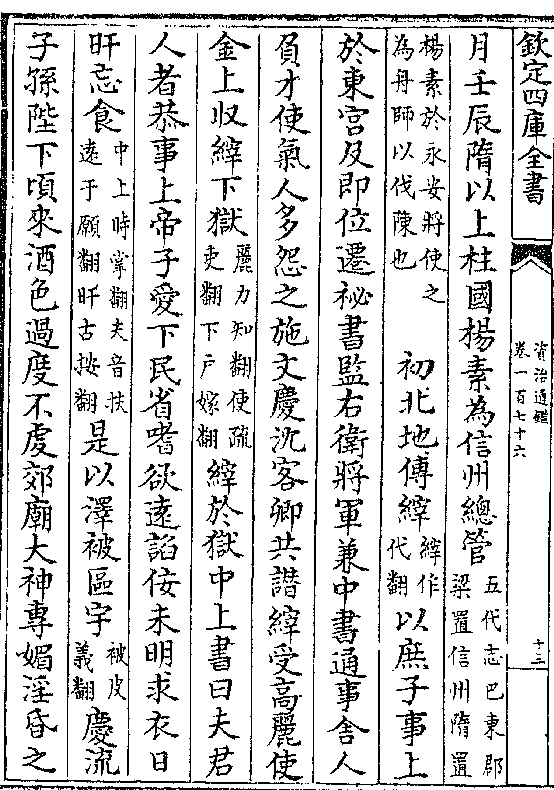 欽定四庫全書
資治通鑑
卷一百七十六
十三
月壬辰隋以上柱國楊素為信州總管五代志巴東郡梁置信州隋置
楊素於永安將使之為舟師以伐陳也 初北地傅縡縡作代翻以庶子事上
於東宮及即位遷祕書監右衛將軍兼中書通事舍人
負才使氣人多怨之施文慶沈客卿共譖縡受高麗使
金上收縡下獄麗力知翻使疏吏翻下戶嫁翻縡於獄中上書曰夫君
人者恭事上帝子愛下民省嗜欲遠諂佞未明求衣日
旰忘食中上時掌翻夫音扶遠于願翻旰古按翻是以澤被區宇被皮義翻慶流
子孫陛下頃來酒色過度不虔郊廟大神專媚淫昏之